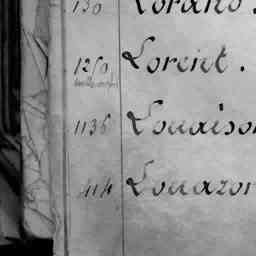 130 Lorans.
1250 Lorciet.
1136 Louaison
414 Louazon